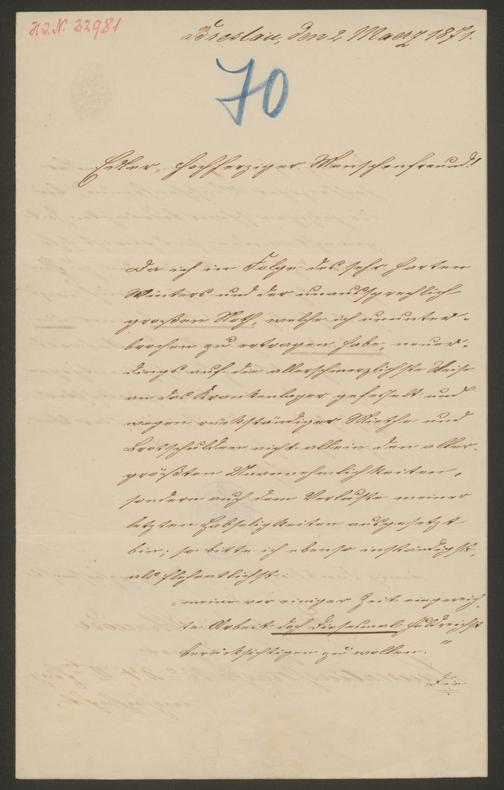 H.I.N. 32981
Breslau, den 2 Maerz 1871.
70
Edler, hochherziger Menschenfreund!
Da ich in Folge des sehr harten
Winters und der unaussprechlich
großen Noth, welche ich ununter-
brochen zu ertragen habe, neuer-
dings auf die allerschmerzlichste Weise
an das Krankenlager gefesselt und
wegen rückständiger Miethe und
Brotschulden nicht allein den aller-
größten Unannehmlichkeiten,
sondern auch dem Verluste meiner
letzten Habseligkeiten ausgesetzt
bin; so bitte ich ebenso inständigst,
als flehentlichst:
"meine vor einiger Zeit eingereich-
te Arbeit doch diesesmal huldreichst
berücksichtigen zu wollen."
Die